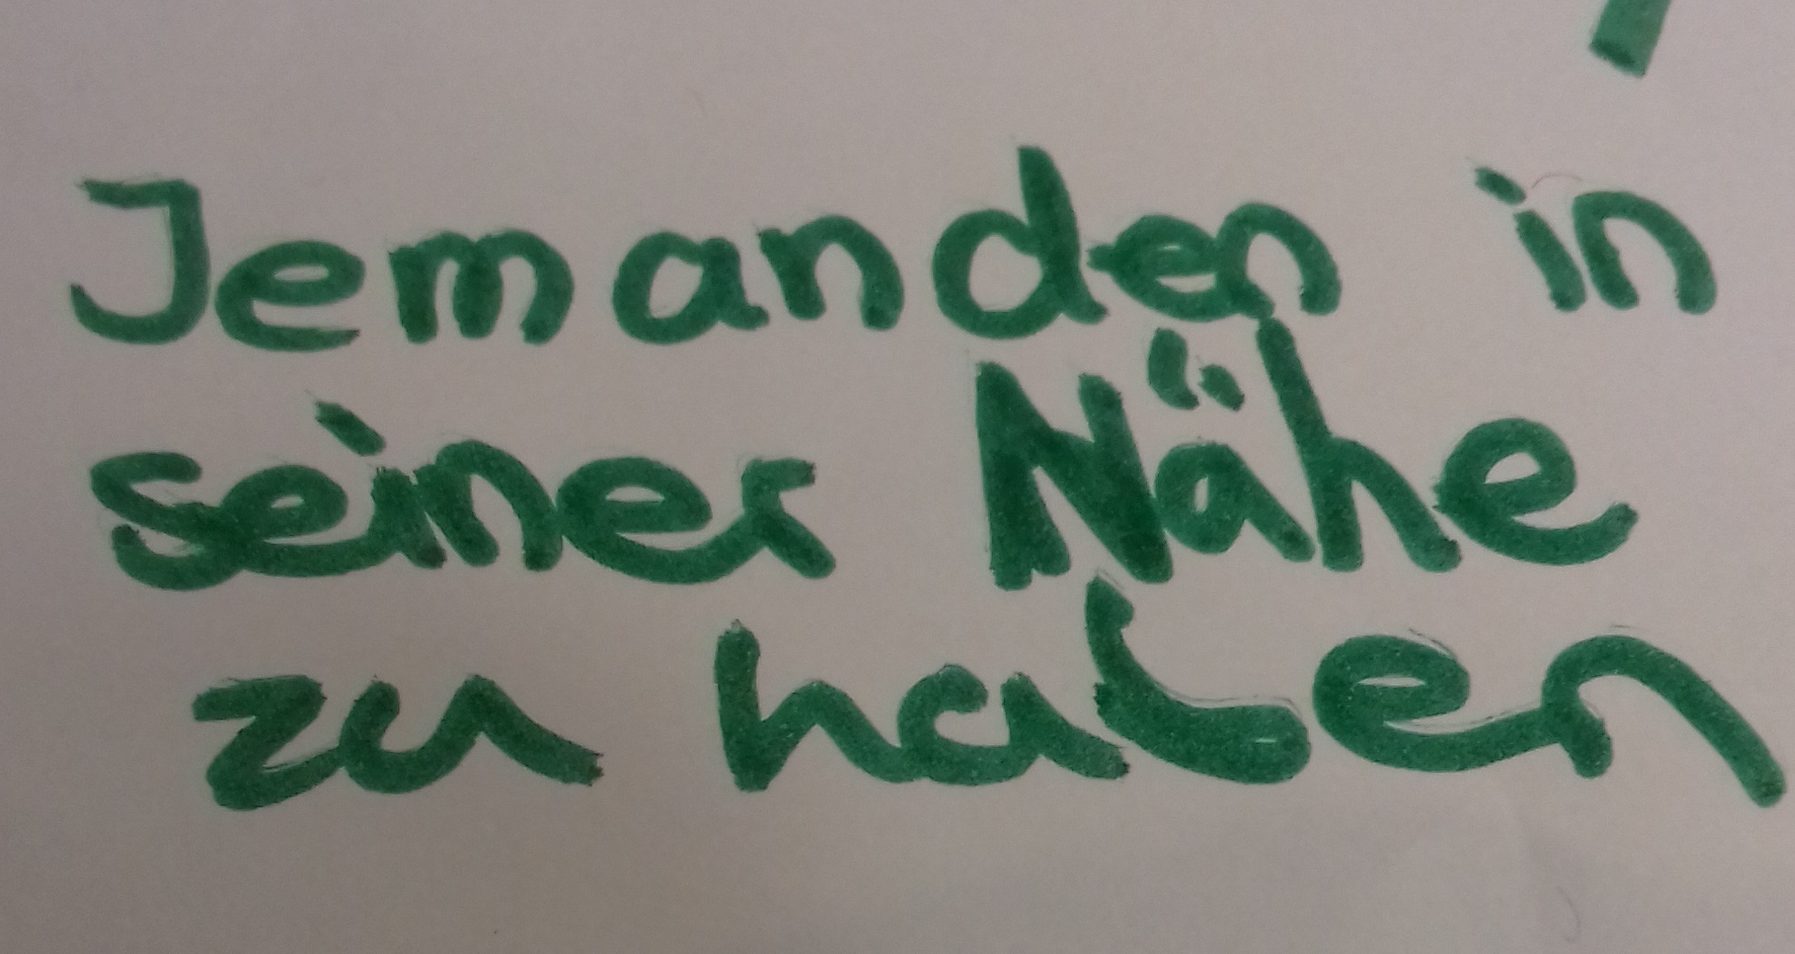 Jemanden in
seiner Nähe
zu haben